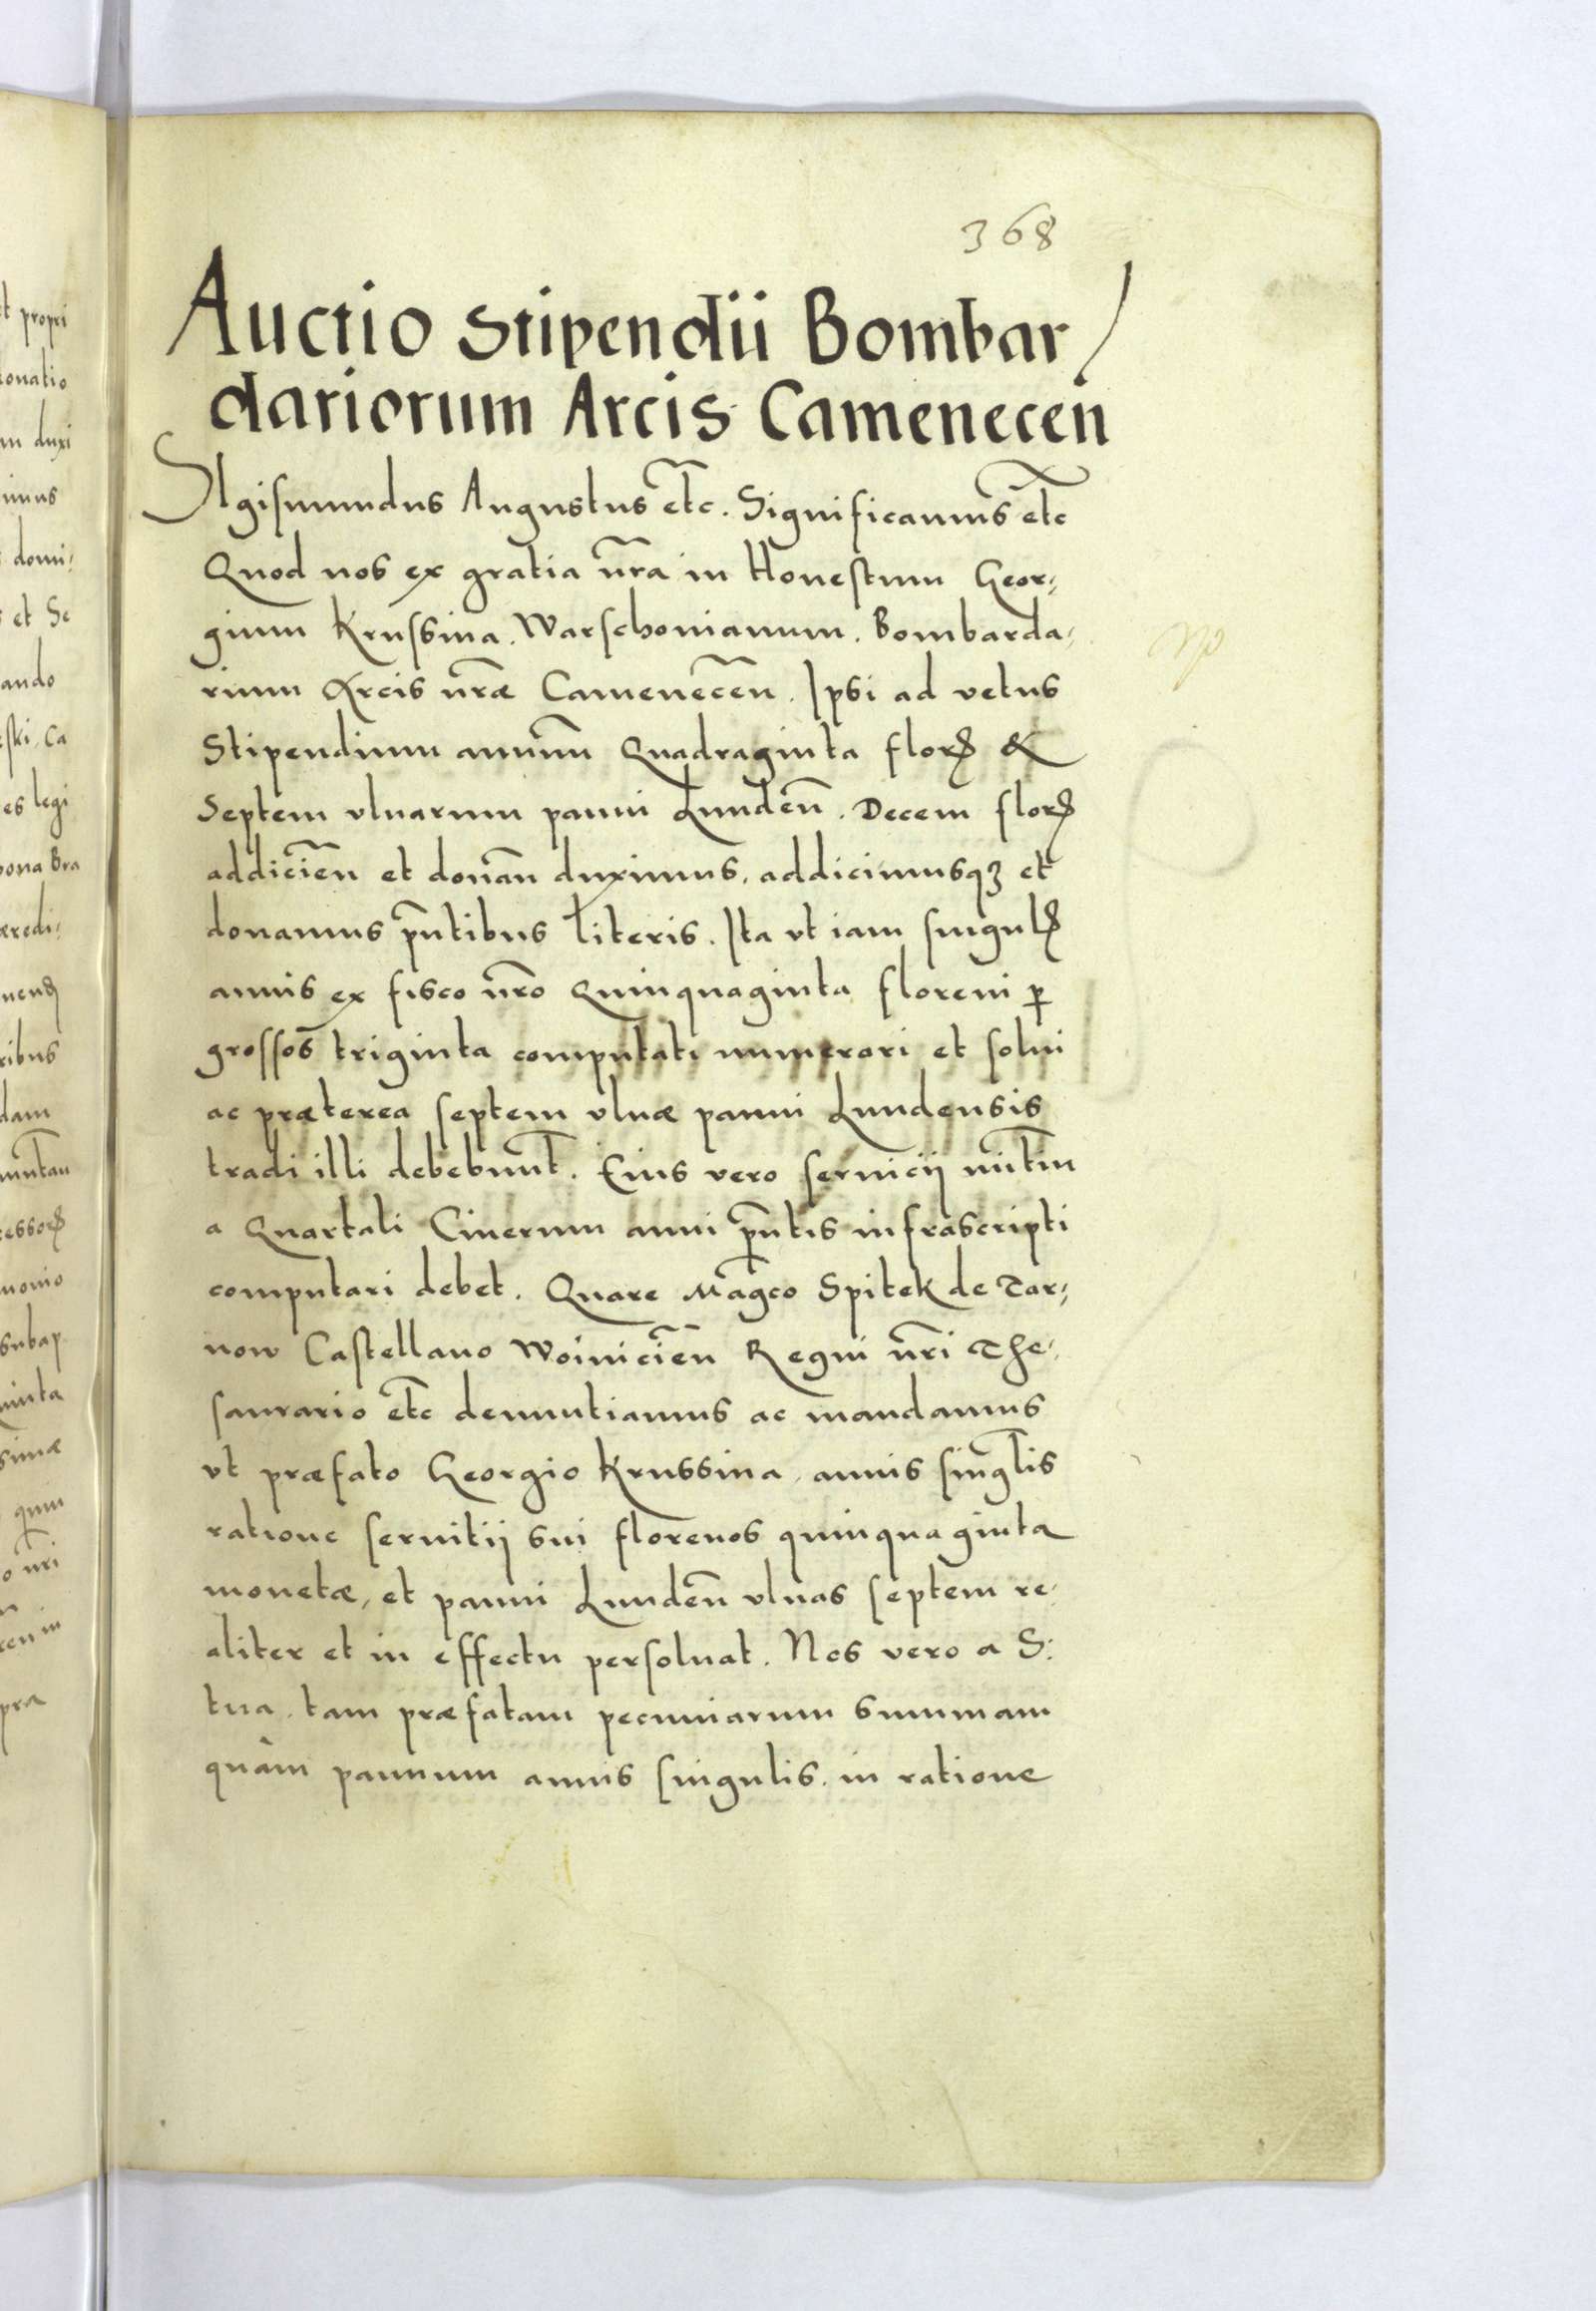 368
Auctio Stipendii Bombar/
dariorum Arcis Camenecen
SIgismundus Augustus etc. Significamus etc
Quod nos ex gratia nra in Honestum Geor,
gium Krussina. Warschouianum. Bombarda,
rium Arcis nræ Camenecen. Ipsi ad vetus
Stipendium annuum Quadraginta flor &
Septem vlnarum panni Lunden. Decem flor
addicien et donan duximus, addicimusq3 et
donamus pntibus literis. Ita vt iam singul
annis ex fisco nro Quinquaginta floreni p
grossos triginta computati numerari et solui
ac præterea septem vlnæ panni Lundensis
tradi illi debebunt. Eius vero seruicij initiu
a Quartali Cinerum anni pntis infrascripti
computari debet. Quare Magco Spitek de Tar,
now Castellano Woinicien Regni nri The,
saurario etc denuntiamus ac mandamus
vt præfato Georgio Krussina, annis singlis
ratione seruitij sui florenos quinquaginta
monetæ, et panni Lunden vlnas septem re,
aliter et in effectu persoluat. Nos vero a S:
tua, tam præfatam pecuniarum summam
quàm pannum annis singulis. in ratione
t propri
onatio
m duxi
imus
domi,
et Se
ando
ski, Ca
es legi
bona Bra
æredi,
ribus
dam
essor
monio
subap
uinta
simæ
quin
o nri
pra